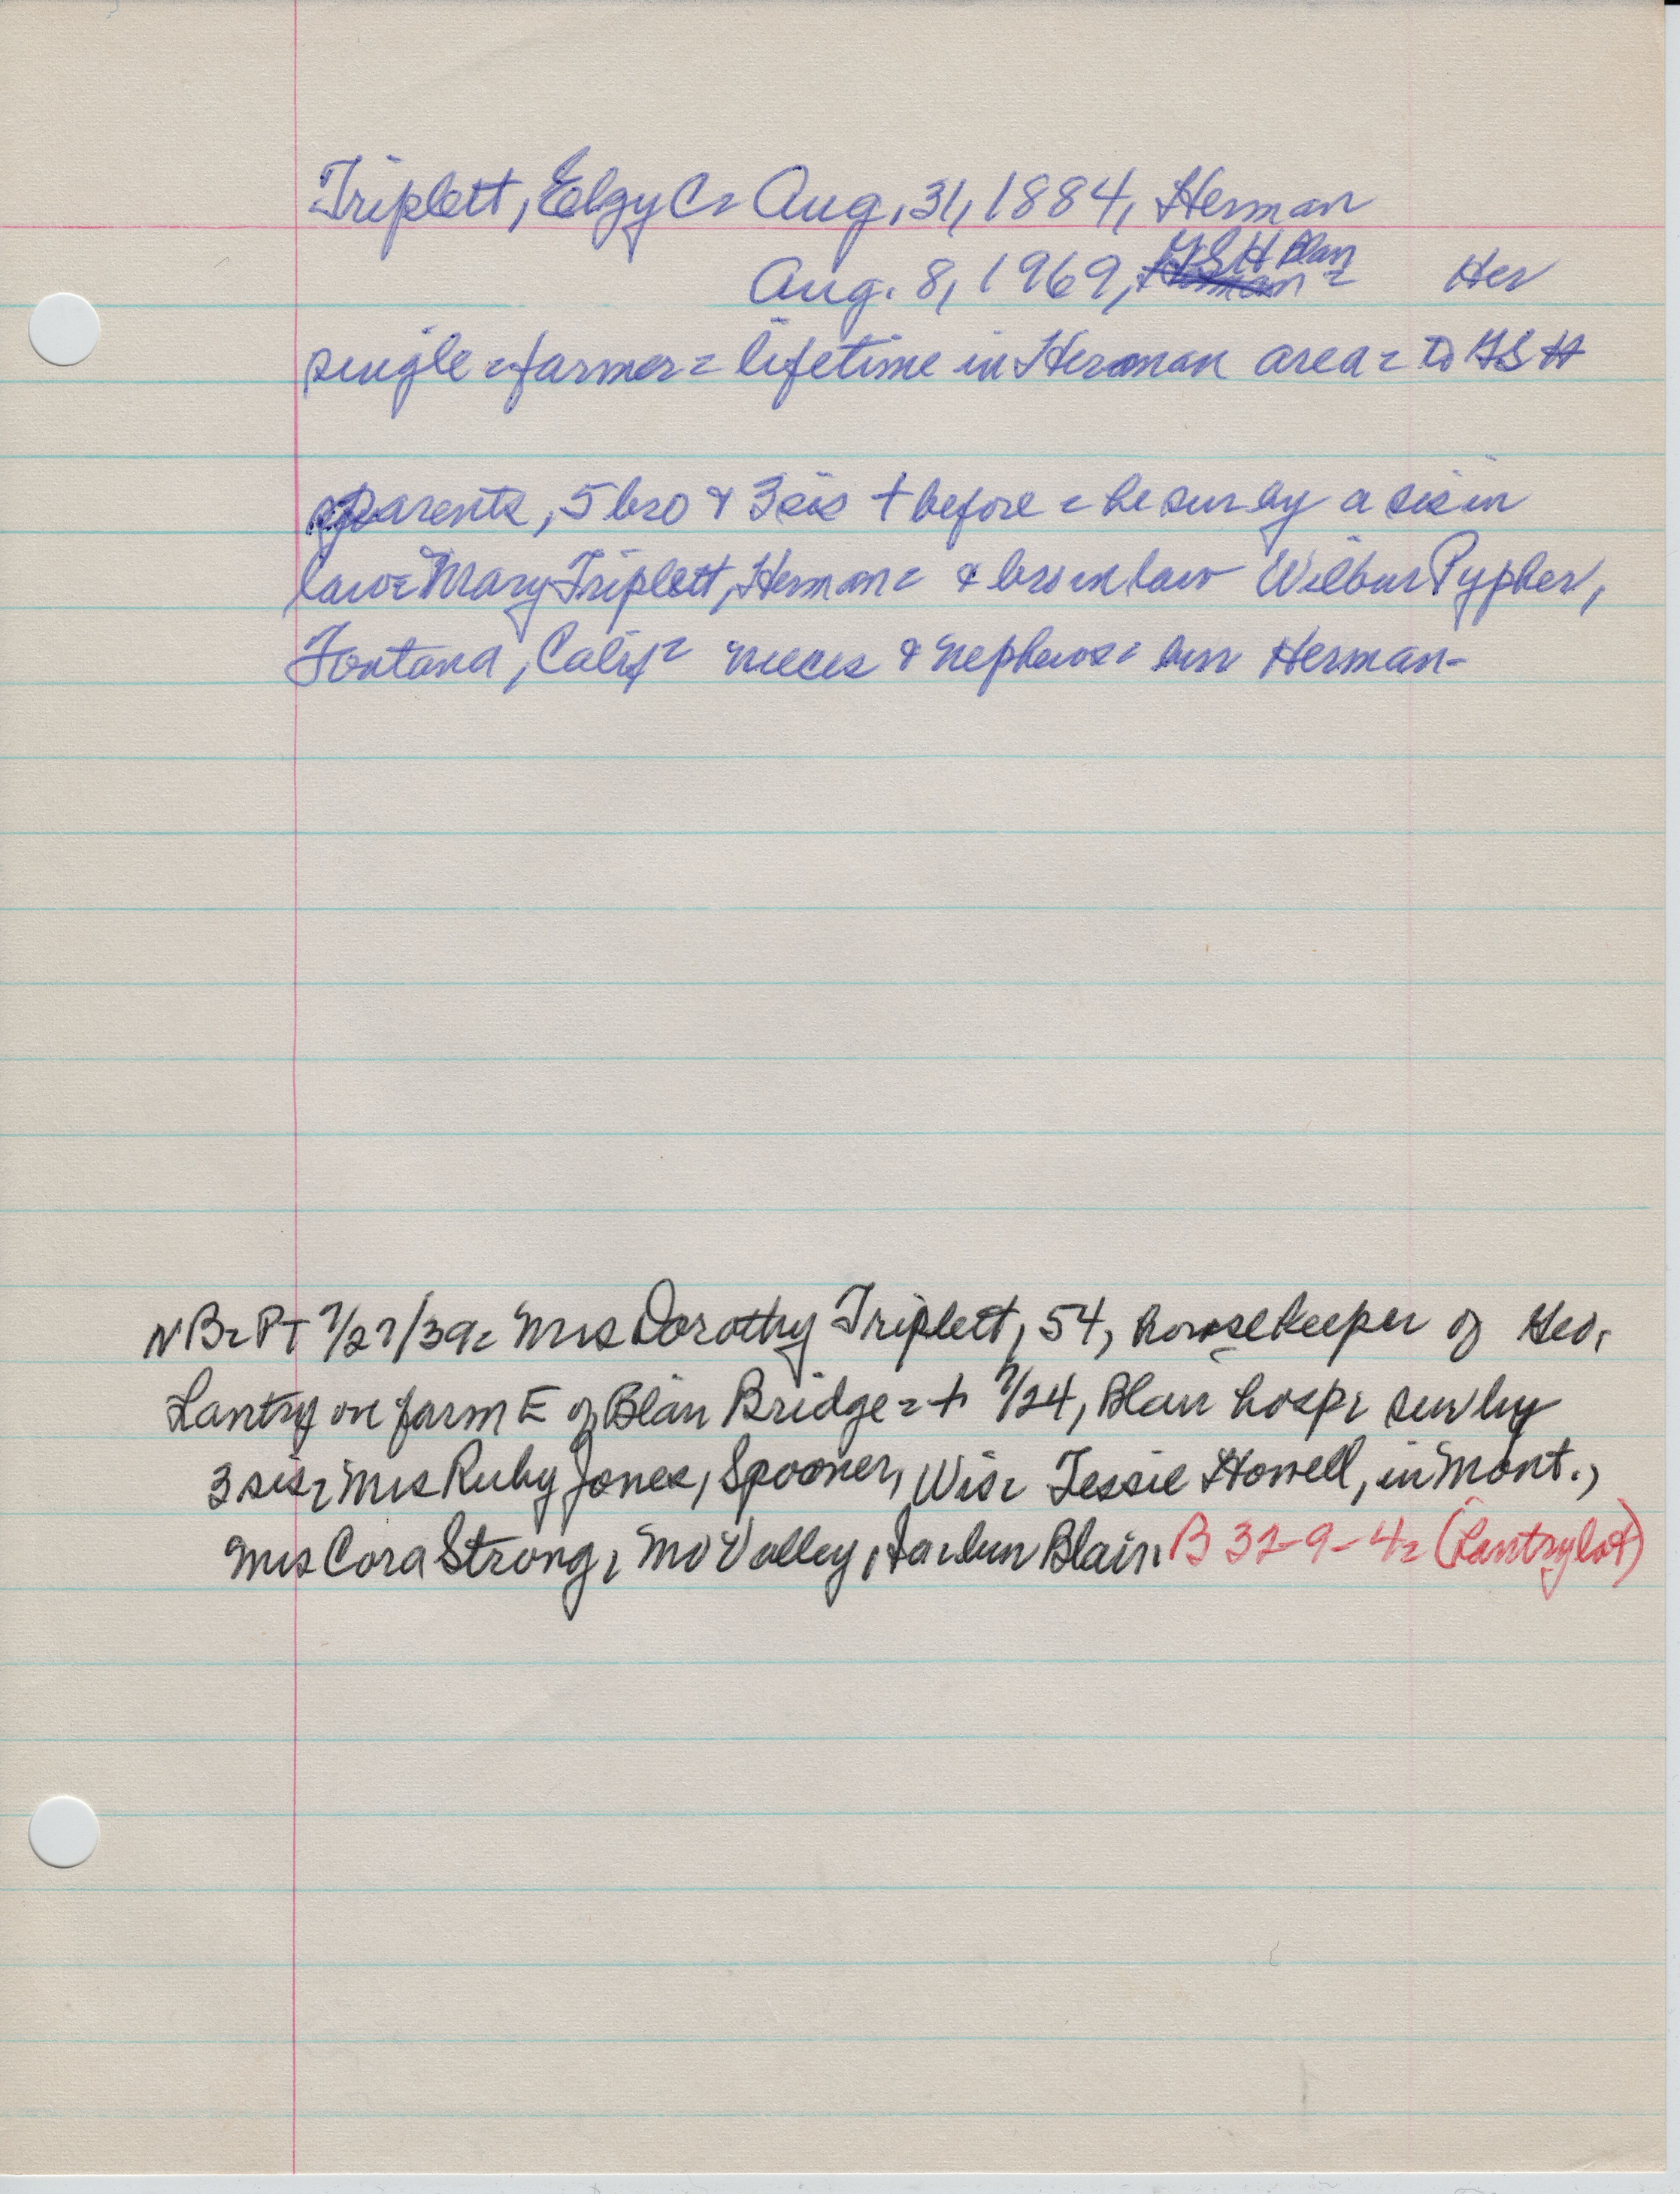 Triplett, Elzy C= Aug. 31, 1884, Herman
Aug. 8, 1969, GSH Blair = Her
single = farmer = lifetime in Herman area = to GSH
parents, 5 bro & 3 sis + before = he sur by a sis in
law = Mary Triplett, Herman = & bro in law Wilbur Pypher,
Fontana, Calif = nieces & nephews = bur Herman-
N B= PT 7/27/39= Mrs Dorothy Triplett, 54, housekeeper of Geo.
Lantry on farm E of Blair Bridge = + 7/24, Blair hosp= sur by
3 sis= Mrs Ruby Jones, Spooner, Wis= Jessie Howell, in Mont.,
Mrs Cora Strong, Mo Valley, Ia= bur Blair. B 32-9-4= (Lantry lot)